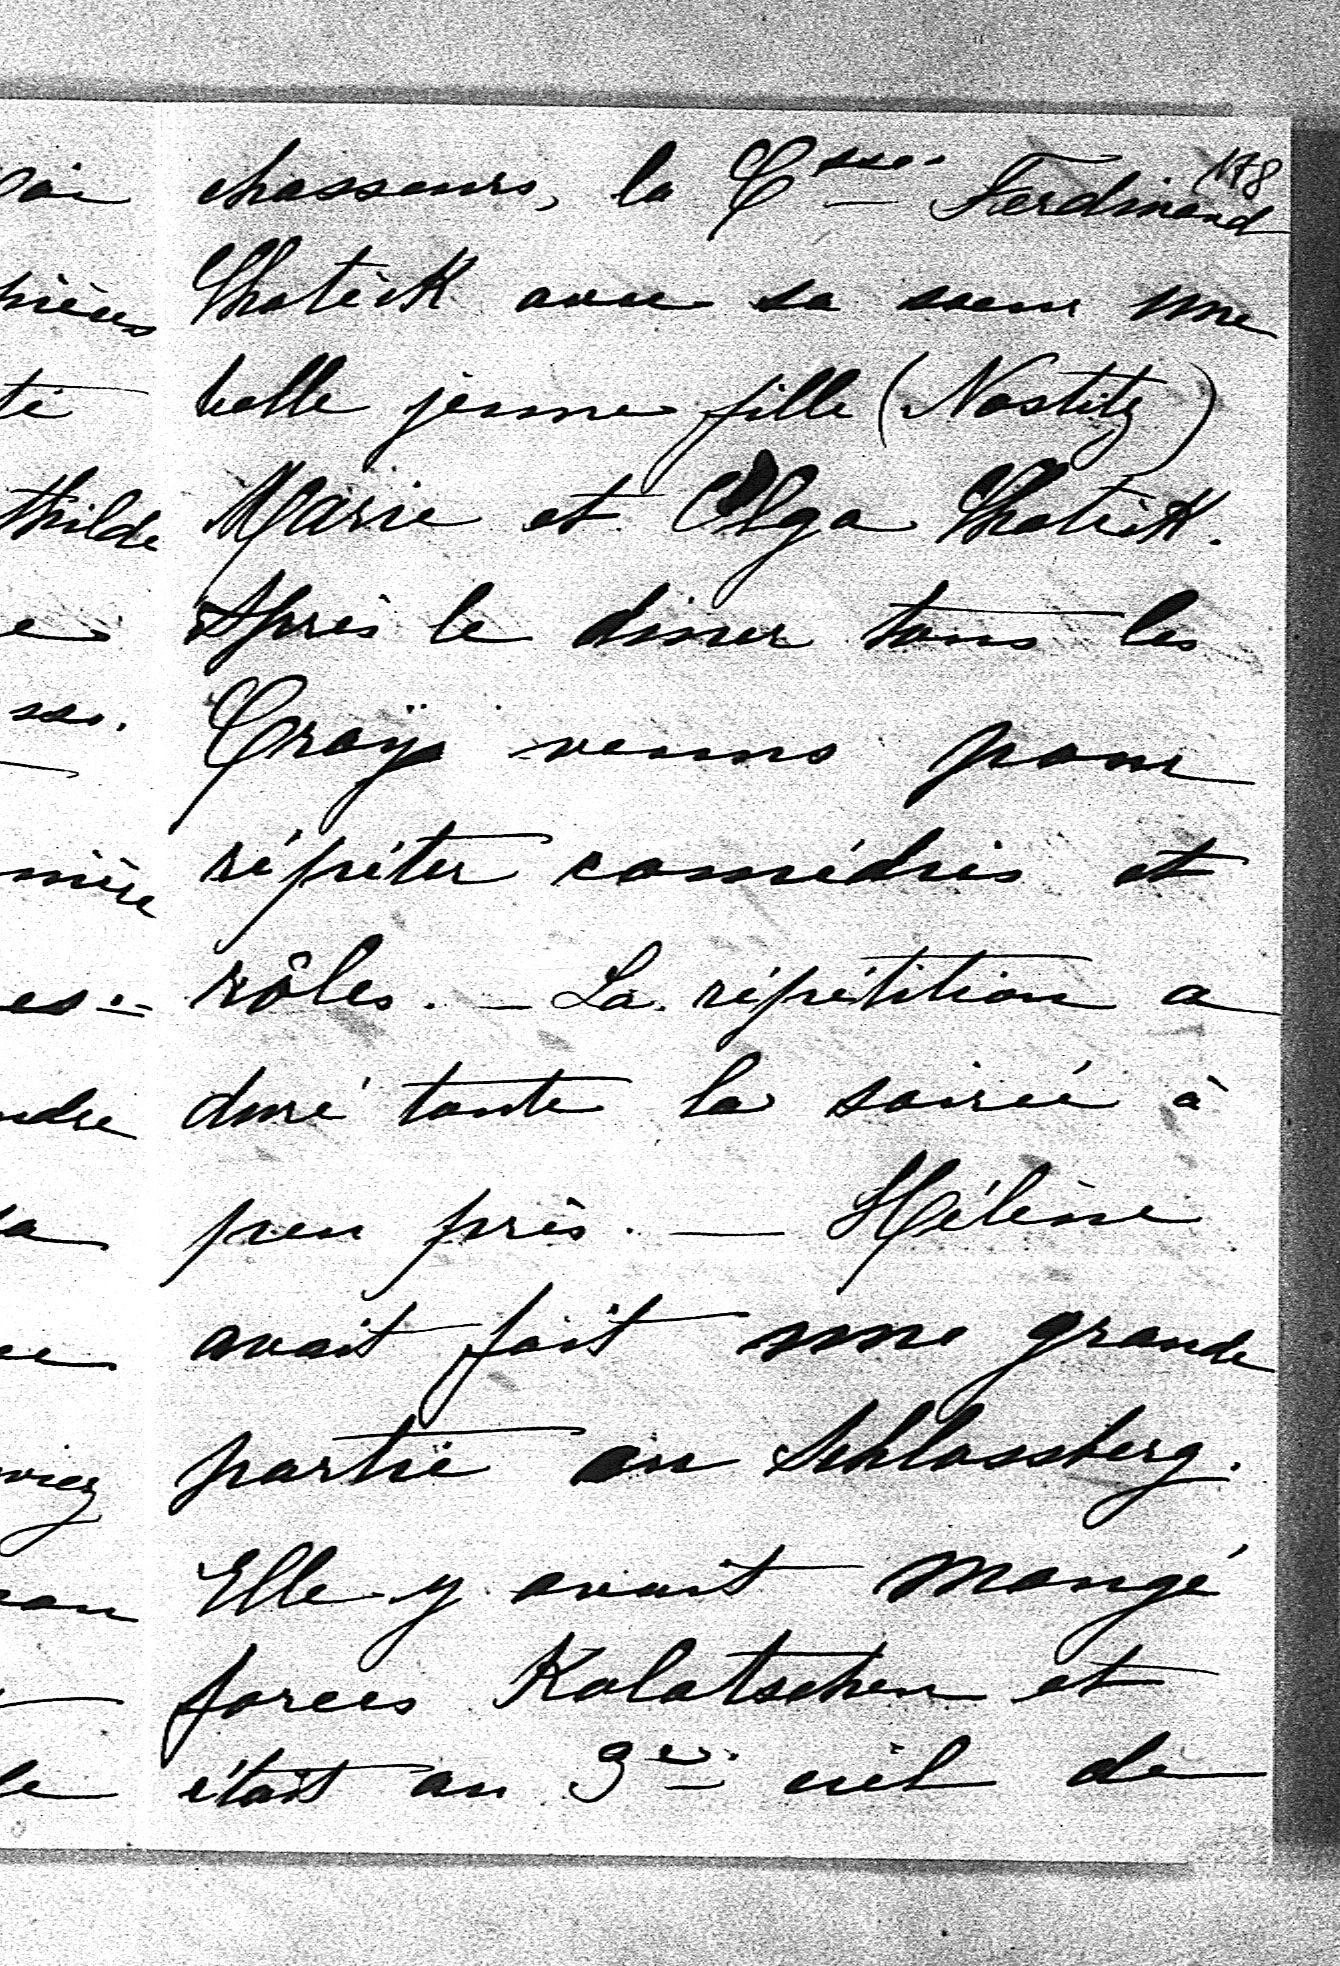 178
chasseurs, la C^sse. Ferdinand
Chotek avec sa soeur une
belle jeune fille (Nostitz)
Marie et Olga Chotek.
Après le diner tous les
Croÿs venus pour
répéter comédies et
rôles. — La répétition a
duré toute la soirée à
peu près. — Hélène
avait fait une grande
partie au Schlossberg.
Elle y avait mangé
forces Kolatschen et
était au 3e. ciel de